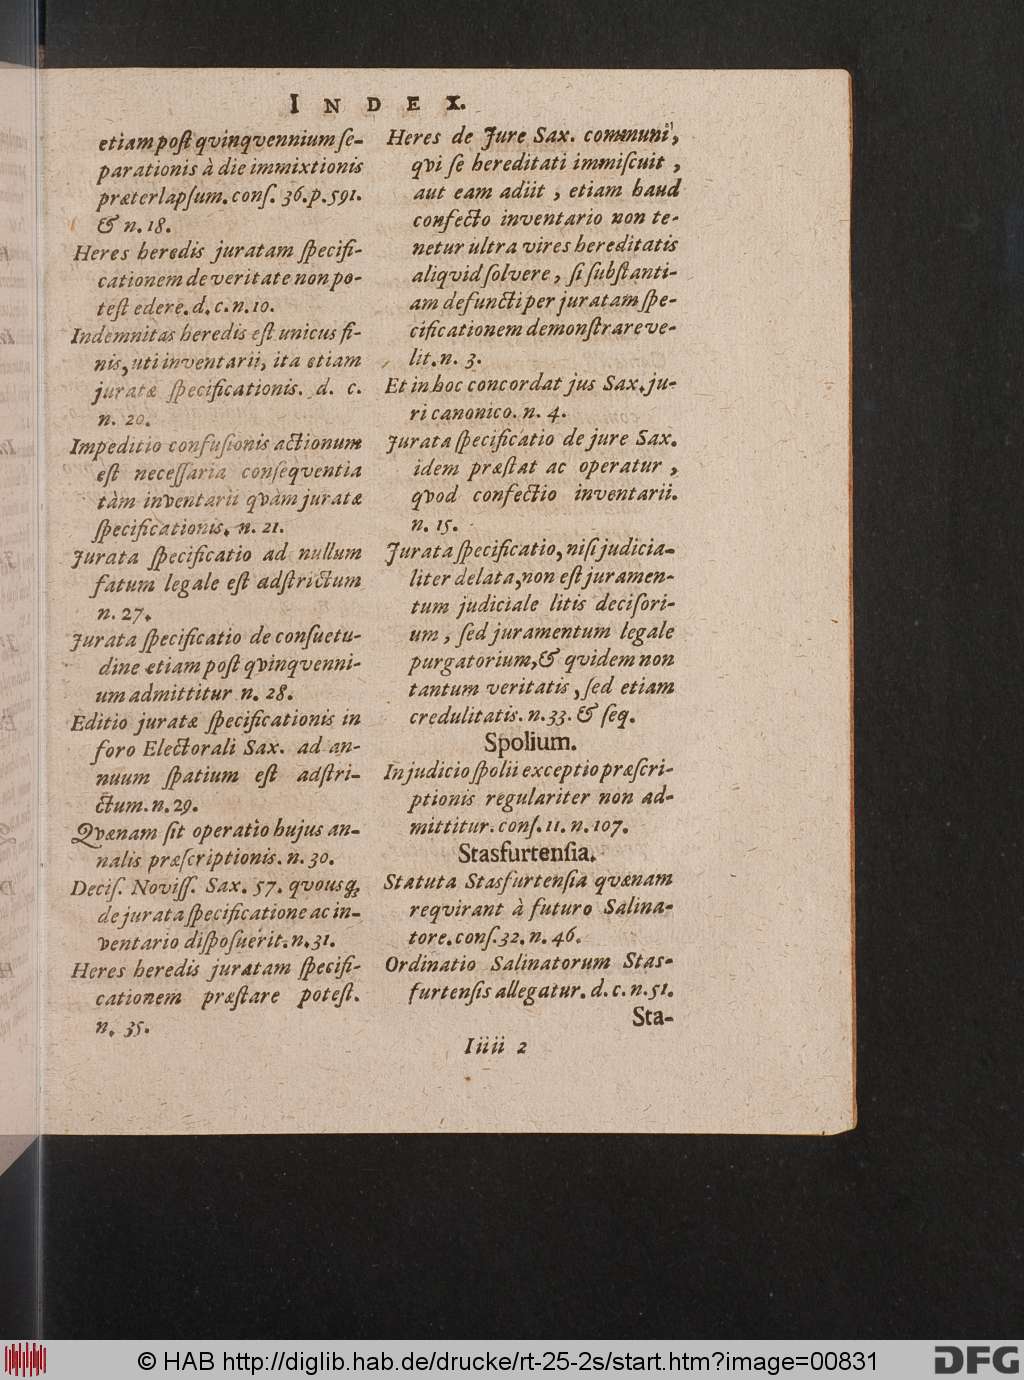 INDEX.
etiam post qvinqvennium se-
parationis à die immixtionis
præterlapsum. cons. 36. p. 591.
& n. 18.
Heres heredis juratam specifi-
cationem de veritate non po-
test edere. d. c. n. 10.
Indemnitas heredis est unicus fi-
nis, uti inventarii, ita etiam
juratæ specificationis. d. c.
n. 20.
Impeditio confusionis actionum
est necessaria conseqventia
tàm inventarii qvàm juratæ
specificationis. n. 21.
Jurata specificatio ad nullum
fatum legale est adstrictum
n. 27.
Jurata specificatio de consuetu-
dine etiam post qvinqvenni-
um admittitur n. 28.
Editio juratæ specificationis in
foro Electorali Sax. ad an-
nuum spatium est adstri-
ctum. n. 29.
Qvænam sit operatio hujus an-
nalis præscriptionis. n. 30.
Decis. Noviss. Sax. 57. qvousq;
de jurata specificatione ac in-
ventario disposuerit. n. 31.
Heres heredis juratam specifi-
cationem præstare potest.
n. 35.
Heres de Jure Sax. communi,
qvi se hereditati immiscuit,
aut eam adiit, etiam haud
confecto inventario non te-
netur ultra vires hereditatis
aliqvid solvere, si substanti-
am defuncti per juratam spe-
cificationem demonstrare ve-
lit. n. 3.
Et in hoc concordat jus Sax. ju-
ri canonico. n. 4.
Jurata specificatio de jure Sax.
idem præstat ac operatur,
qvod confectio inventarii.
n. 15.
Jurata specificatio, nisi judicia-
liter delata, non est juramen-
tum judiciale litis decisori-
um, sed juramentum legale
purgatorium, & qvidem non
tantum veritatis, sed etiam
credulitatis. n. 33. & seq.
Spolium.
In judicio spolii exceptio præscri-
ptionis regulariter non ad-
mittitur. cons. 11. n. 107.
Stasfurtensia.
Statuta Stasfurtensia qvænam
reqvirant à futuro Salina-
tore. cons. 32. n. 46.
Ordinatio Salinatorum Stas-
furtensis allegatur. d. c. n. 51.
Sta-
Iiiii 2
© HAB http://diglib.hab.de/drucke/rt-25-2s/start.htm?image=00831
DFG